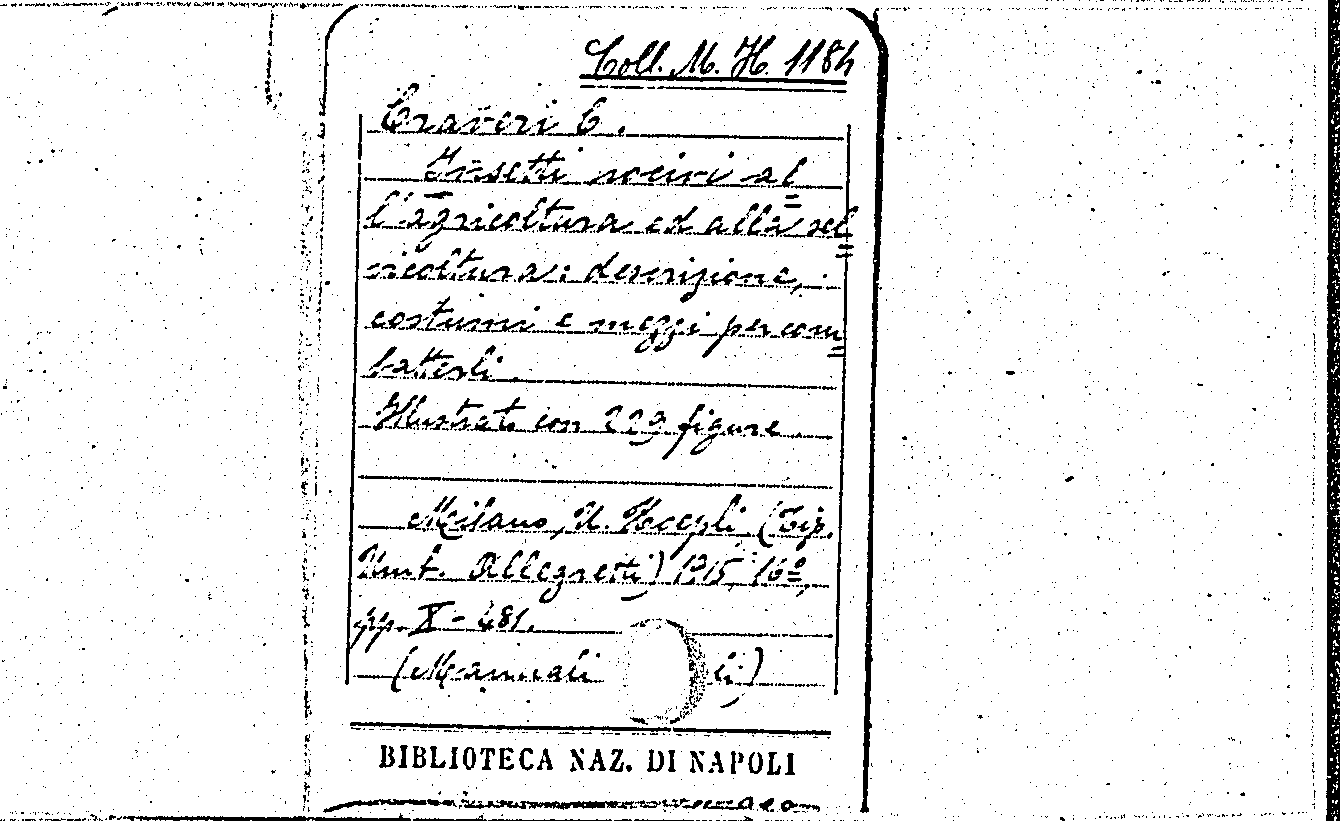 Coll. M. H. 1184
Craveri C.
Insetti nocivi al=
l'agricoltura ed alla sel=
vicoltura: descrizione,
costumi e mezzi per com=
batterli.
Illustrat. con 223 figure.
Milano, U. Hoepli, (Tip.
Umb. Allegretti) 1915, 16º,
pp. X - 481.
(Manuali li)
BIBLIOTECA NAZ. DI NAPOLI